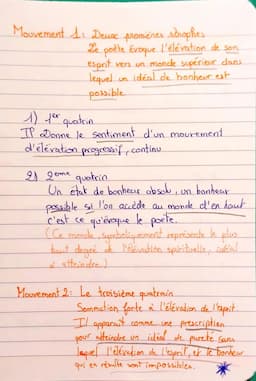 Mouvement 1: Deux premières strophes
Le poète évoque l'élévation de son
esprit vers un monde supérieur dans
lequel un idéal de bonheur est
possible
1) 1er quatrin
Il donne le sentiment d'un mouvement
d'élévation progressif, continu
2) 2eme quatrin
Un état de bonheur absolu, un bonheur
possible si l'on accède au monde d'en haut
c'est ce qu'évoque le poète.
(Ce monde, symboliquement représente le plus
haut degré de l'élévation spirituelle, idéal
à atteindre.)
Mouvement 2: Le troisième quatrain
Sommation forte à l'élévation de l'esprit
Il apparaît comme une prescription
pour atteindre un idéal de pureté sans
lequel l'élévation de l'esprit, et le bonheur
qui en résulte sont impossibles.